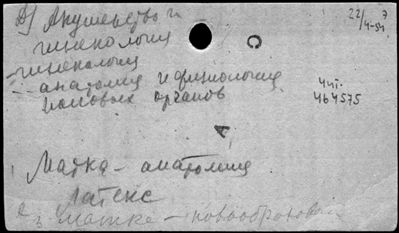 2) Акушерство и
гинекология
22/4-54 Э
- гинекология
- анатомия и физиология
половых органов
чит.
464575
А
1 Матка - анатомия
Латекс
2 в матке - новообразован